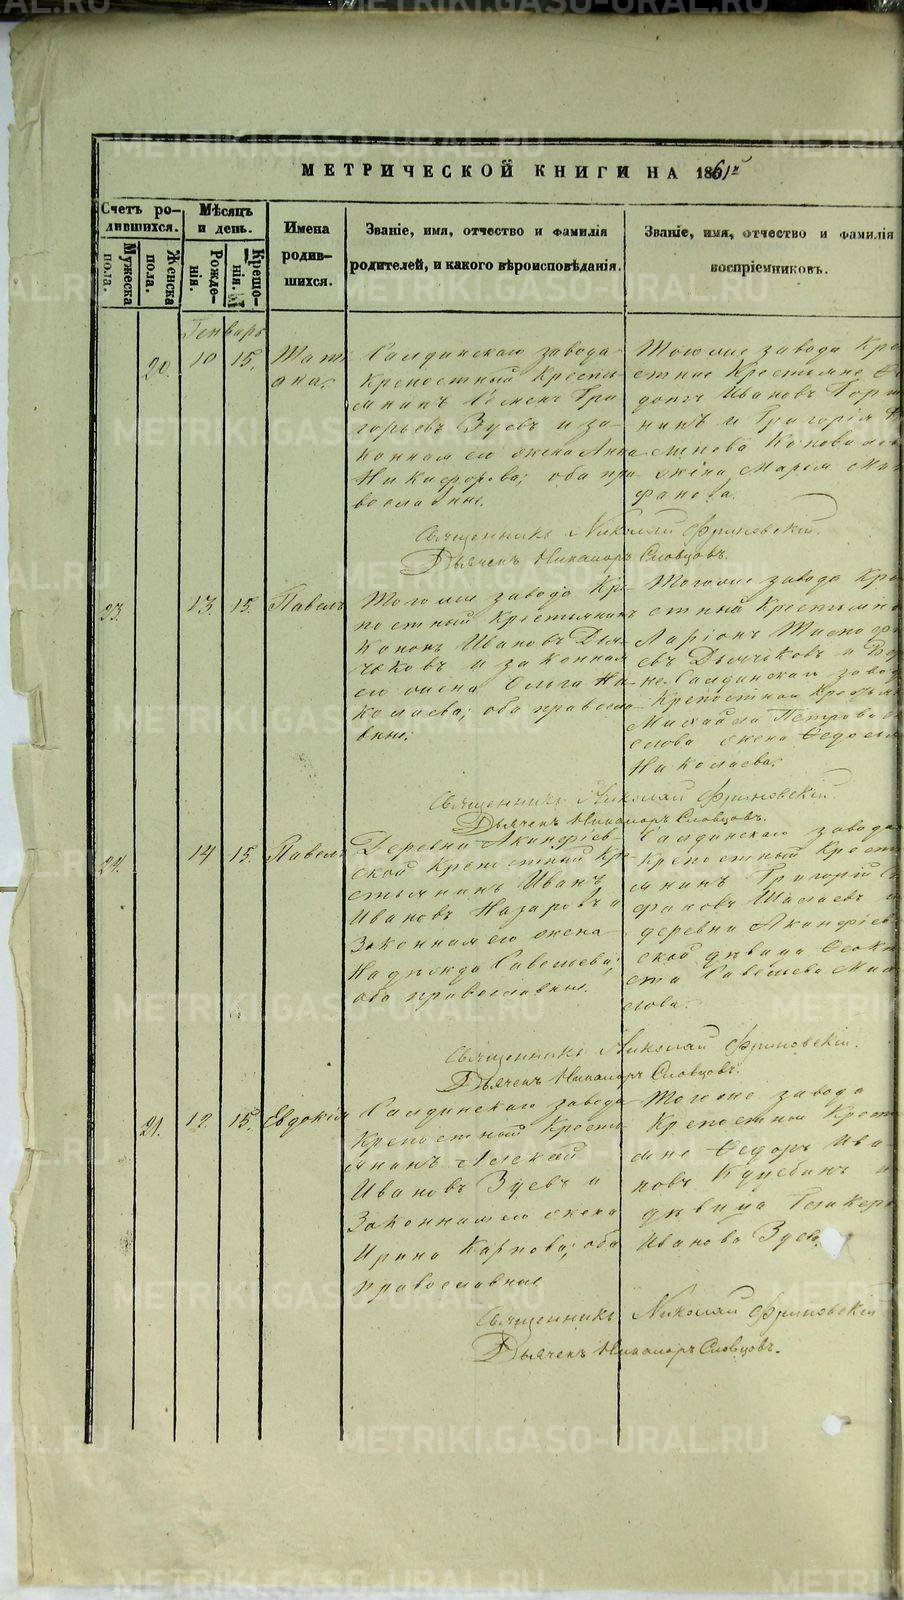 МЕТРИЧЕСКОЙ КНИГИ НА 1861 г
Счетъ ро-
дившихся.
Мужеска
пола.
Женска
пола.
Мѣсяцъ
и день.
Рожде-
нія.
Креще-
нія.
Имена
родив-
шихся.
Званіе, имя, отчество и фамилія
родителей, и какого вѣроисповѣданія.
Званіе, имя, отчество и фамилія
воспріемниковъ.
Генварь
20. 10 15. Тать
яна.
Салдинскаго завода
крѣпостный крестья-
янинъ Семенъ Гри
горьевъ Зуевъ и за
конная его жена Анна
Никифорова; оба пра
вославные.
Тогоже завода крѣ
стные крестьяне
Ивановъ
и Григорія
Коновалова
жена Марѳа
Священникъ Николай Фриновскій.
Дьячекъ Никаноръ Словцовъ.
23. 13. 15. Павелъ
Тогоже завода крѣ-
постный крестьянинъ
Конон Ивановъ Дья-
чковъ и законная
его жена Ольга Ни
колаева; оба правосла
вные.
Тогоже завода крѣ
стный крестьянинъ
Ларіонъ
въ Дьячковъ и Вер
не-Салдинскаго завода
крѣпостнаго крестьян
Михайла Петрова
жена Ѳедосья
Николаева.
Священникъ Николай Фриновскій
Дьячекъ Никаноръ Словцовъ.
24. 14 15. Павелъ
Деревни Акинфіев-
ской крѣпостный кре
стьянинъ Иванъ
Ивановъ Назаровъ и
Законная его жена
Надежда Савельева;
оба православные.
Салдинскаго завода
крѣпостный кресть
янинъ Григорій
и
деревни Акинфіев
ской дѣвица
Савельева
Священникъ Николай Фриновскій.
Дьячекъ Никаноръ Словцовъ.
21. 12. 15. Евдокія
Салдинскаго завода
Крѣпостный кресть
янинъ Алексей
Ивановъ Зуевъ и
Законная его жена
Ирина Карпова; оба
православные
Тогоже завода
Крѣпостные Кресть
яне Ѳедоръ Ива
новъ и
дѣвица
Иванова Зуев
Священникъ Николай Фриновскій
Дьячекъ Никаноръ Словцовъ.
METRIKI.GASO-URAL.RU